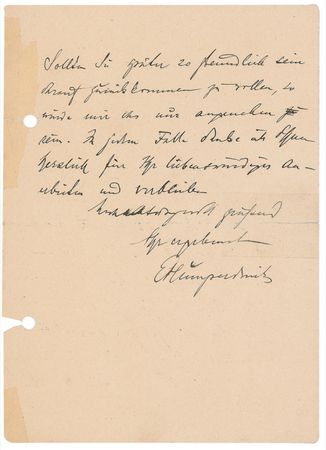 Sollten Sie später so freundlich sein
darauf zurückkommen zu wollen, so
würde mir das nur angenehm
sein. In jedem Falle danke ich Ihnen
herzlich für Ihr liebenswürdiges An-
erbieten und verbleibe
hochachtungsvoll grüßend
Ihr ergebenster
EHumperdinck